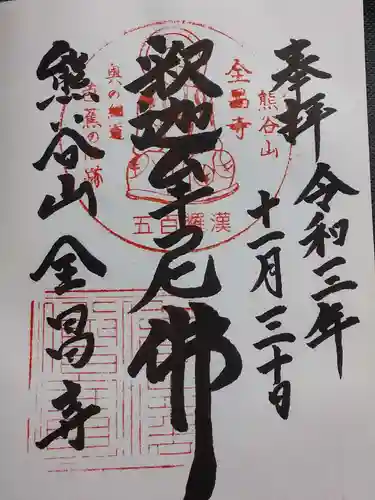 奉拝
令和三年
十一月三十日
釈迦牟尼佛
熊谷山
全昌寺
熊谷山
全昌寺
奥の細道
芭蕉の
五百羅漢